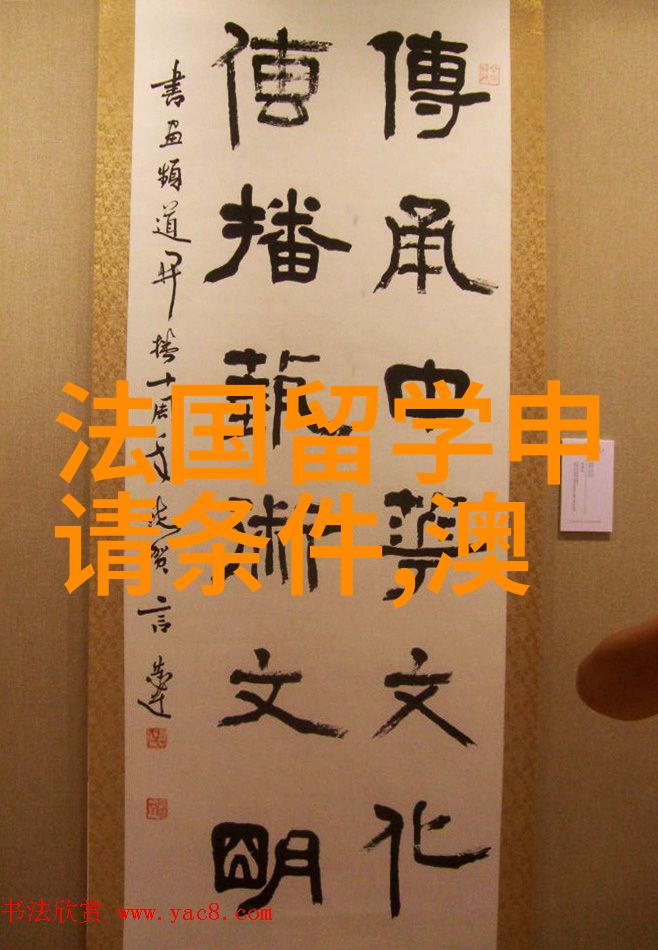 傳承中華文化
傳播藝術文明
書画頻道开播十周年志贺 言恭达
法国留学申
请条件,澳
书法欣赏 www.yac8.com